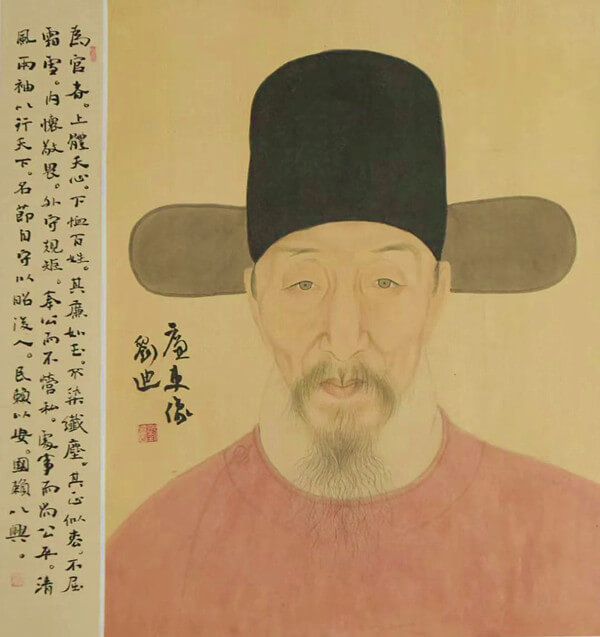 廉吏像
劉迪
為官者。上體天心。下恤百姓。其廉如玉。不染纖塵。其正似松。不屈
霜雪。内懷敬畏。外守規矩。奉公而不營私。處事而尚公平。清
風兩袖以行天下。名節自守以昭後人。民賴以安。國賴以興。